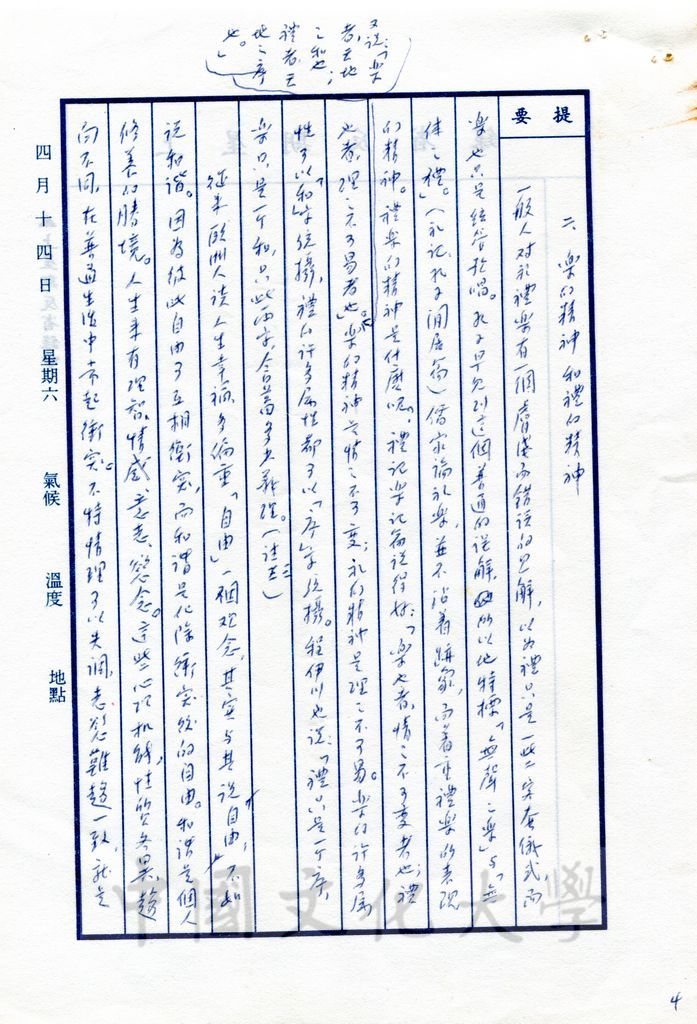 又說：「樂
者，天地
之和也；
禮者，天
地之序
也。」
提要
二、樂的精神和禮的精神
一般人对於禮樂有一個膚淺而錯誤的見解，以為禮只是一些客套儀式，而
樂也只是絃管歌唱。孔子早見到這個普通的誤解，所以他特標「無聲之樂」与「無
体之禮」。（礼記，孔子閒居篇）儒家論礼樂，並不沾着跡象，而着重禮樂的表現
的精神。禮樂的精神是什麼呢？禮記樂記篇說得好：「樂也者，情之不可變者也；禮
也者，理之不可易者也。」樂的精神是情之不可變；礼的精神是理之不可易。樂的許多屬
性可以「和」字統攝，禮的許多屬性都可以「序」字統攝。程伊川也說：「禮只是一个序，
樂只是一个和，只此兩字，含蓄多少義理。」（註三）
從来歐洲人談人生幸福，多偏重「自由」一個观念，其实与其說自由，不如
說和諧。因為彼此自由可互相衝突，而和諧是化除衝突後的自由。和諧是個人
修養的勝境。人生来有理智、情感、意志、慾念。這些心理机能，性質各異，趨
向不同，在普通生活中常起衝突。不特情理可以失調，志慾難趨一致，就是
四月十四日
星期六
氣候
溫度
地點
中國文化大學
4